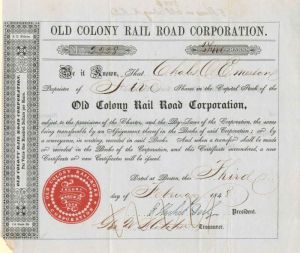 OLD COLONY RAIL ROAD CORPORATION.
No.
Be it Known, That Chas. C. Emerson
Proprietor of Five Shares in the Capital Stock of the
Old Colony Rail Road Corporation,
subject to the provisions of the Charter, and the By-Laws of the Corporation, the same
being transferable by an Assignment thereof in the Books of said Corporation; or by
a conveyance, in writing, recorded in said Books. And when a transfer shall be made
or recorded in the Books of the Corporation, and this Certificate surrendered, a new
Certificate or new Certificates will be issued.
Dated at Boston, this Third
day of February 1848
President.
Treasurer.
OLD COLONY RAILROAD
CORPORATION
OLD COLONY RAIL ROAD CORPORATION.